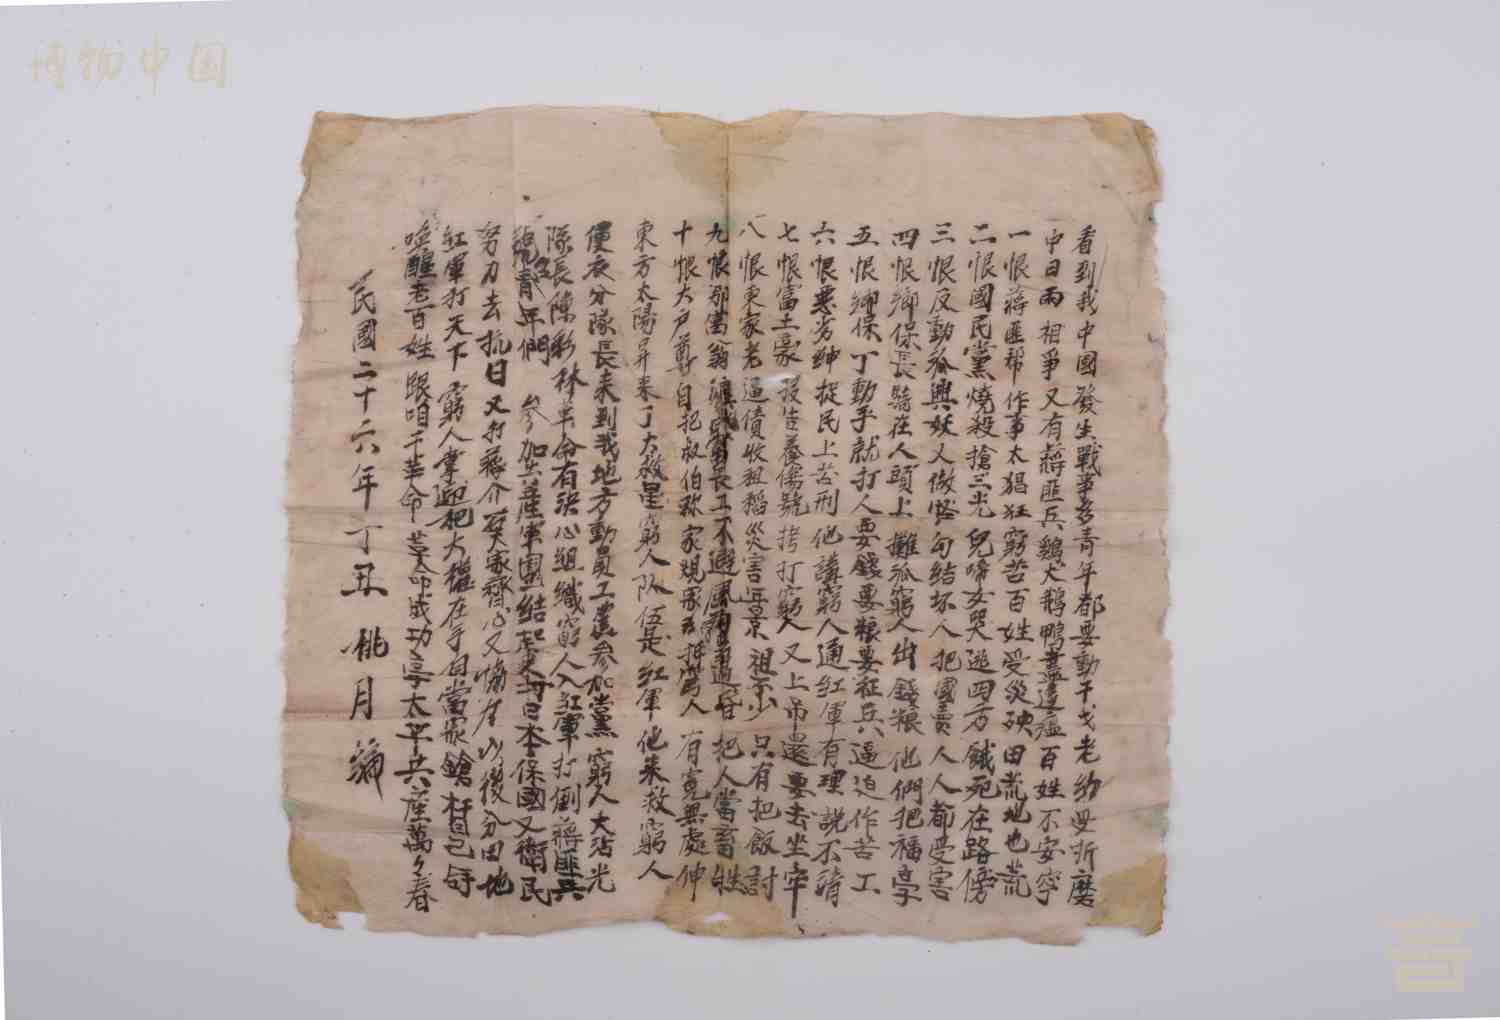 博物中国
看到我中國發生戰爭多青年都要動干戈老幼受折磨
中日両相爭又有蔣匪兵鷄犬鵝鴨盡遭瘟百姓不安寧
一恨蔣匪幫作事太猖狂窮苦百姓受災殃田荒地也荒
二恨國民黨燒殺搶三光兒啼女哭逃四方餓死在路傍
三恨反動派興妖又做怪勾結坏人把國賣人人都受害
四恨鄉保長騎在人頭上攤派窮人出錢粮他們把福享
五恨鄉保丁動手就打人要錢要粮要征兵逼迫作苦工
六恨惡劣紳捉民上苦刑他講窮人通紅軍有理說不清
七恨富土豪拷打窮人又上吊還要去坐牢
八恨東家老逼債收租稻災害年景祖不少只有把飯討
九恨那富翁長工不避風雨把人當畜牲
十恨大戶尊自把叔伯称家規窮人有寃無處伸
東方太陽昇来了大救星窮人队伍是紅軍他来救窮人
便衣分隊長来到我地方動員工農参加黨窮人大沾光
隊長陳彩林革命有決心組織窮人入紅軍打倒蔣匪兵
青年們参加共產軍團結起来打日本保國又衛民
努力去抗日又打蔣介石大家齊心又協力以後分田地
紅軍打天下窮人掌印把大權在手自當家鎗杆自己
喚醒老百姓跟咱干革命革命成功享太平共產萬々春
民國二十六年丁丑桃月编